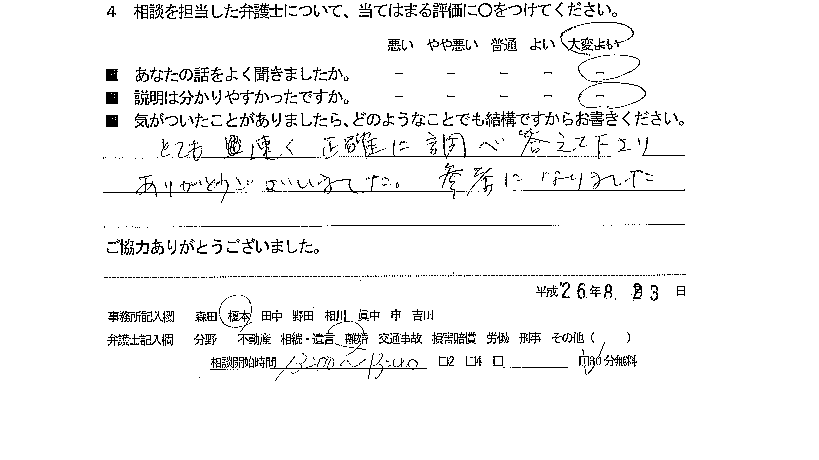 4 相談を担当した弁護士について、当てはまる評価に○をつけてください。
悪い やや悪い 普通 よい 大変よい
■ あなたの話をよく聞きましたか。 － － － － －
■ 説明は分かりやすかったですか。 － － － － －
■ 気がついたことがありましたら、どのようなことでも結構ですからお書きください。
とても 速く 正確に調べ答えて下さり
ありがとうございました。 参考になりました
ご協力ありがとうございました。
平成 26年 8. 23 日
事務所記入欄 森田 榎本 田中 野田 相川 眞中 市 吉川
弁護士記入欄 分野 不動産 相続・遺言 離婚 交通事故 損害賠償 労働 刑事 その他（ ）
相談開始時間 □2 □4 □ □30分無料